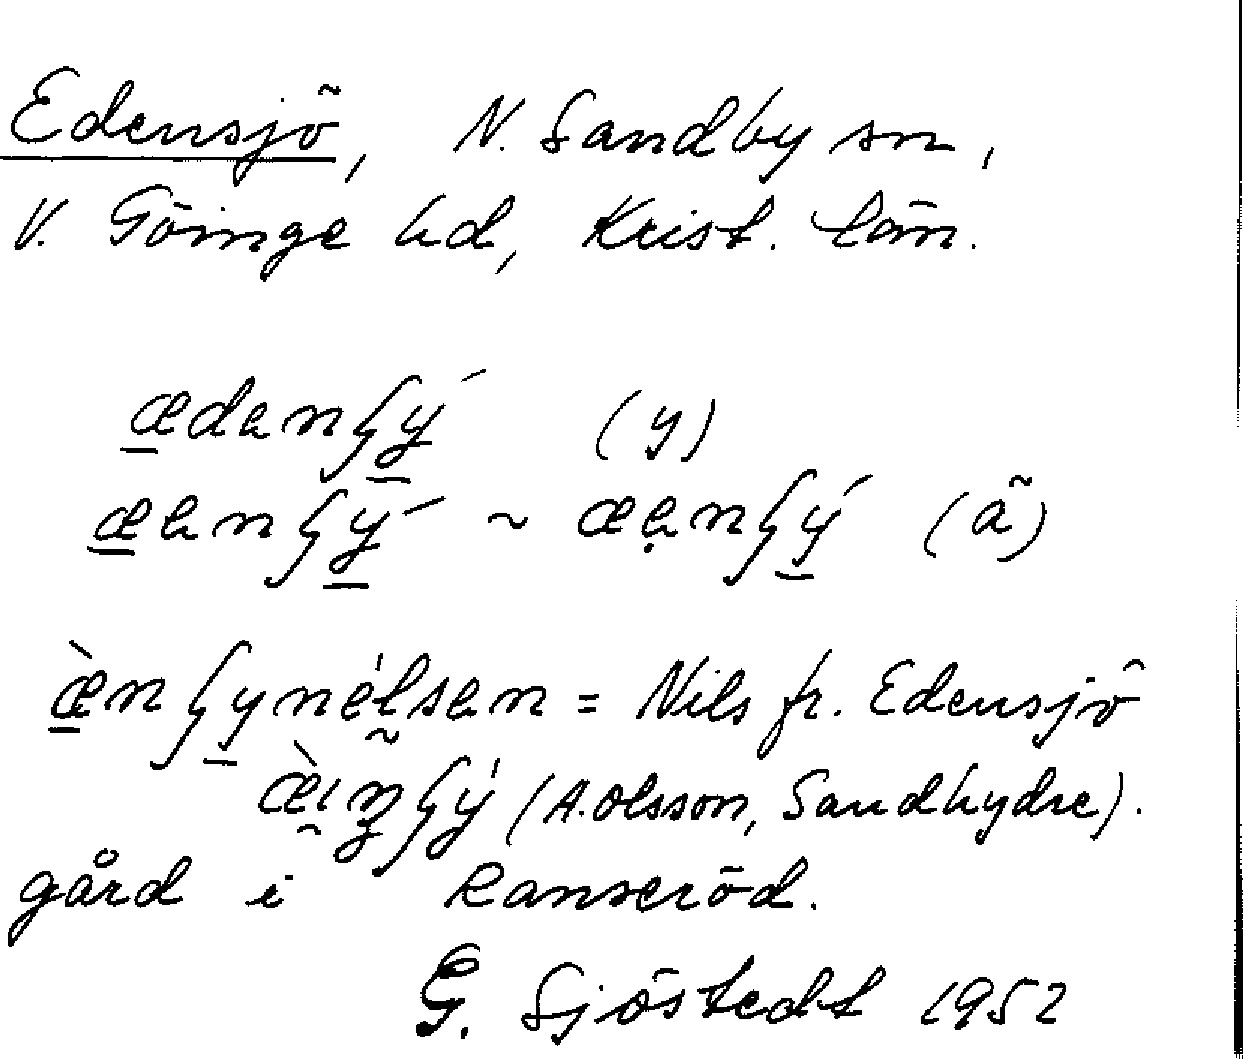 Edensjö, N. Sandby sn,
V. Göinge hd, Krist. län.
ædenʃý (y)
æenʃý ~ æẹnʃý (ä)
æ̀nʃynélsen = Nils fr. Edensjö
æ̀ı̰nʃý (A. Olsson, Sandhydre).
gård i Ranseröd.
G. Sjöstedt 1952